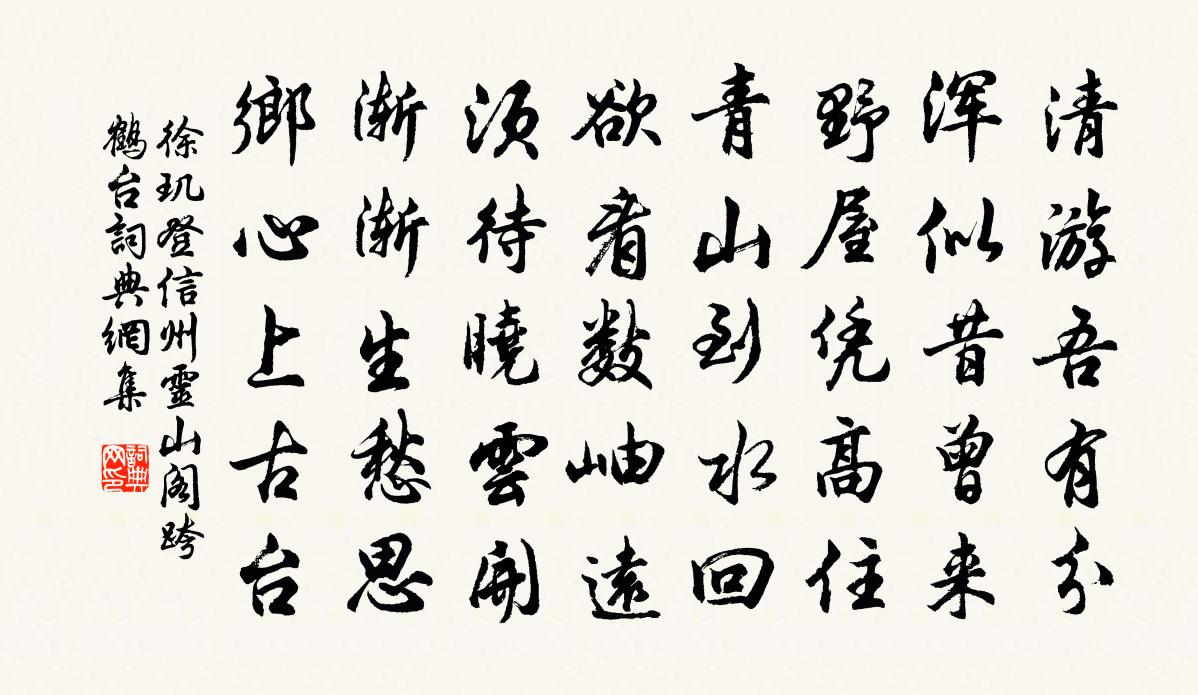 清游吾有分
浑似昔曾来
野屋凭高住
青山到水回
欲看数岫远
须待曉雲開
渐渐生愁思
鄉心上古台
徐玑登信州靈山阁跨
鶴台詞典網集
詞典
网印